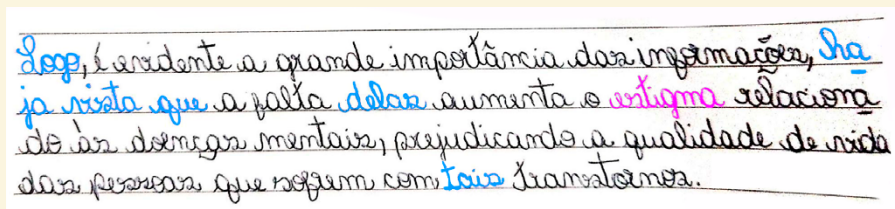 Logo, é evidente a grande importância das informações, ha
ja vista que a falta delas aumenta o estigma relaciona
do às doenças mentais, prejudicando a qualidade de vida
das pessoas que sofrem com tais transtornos.